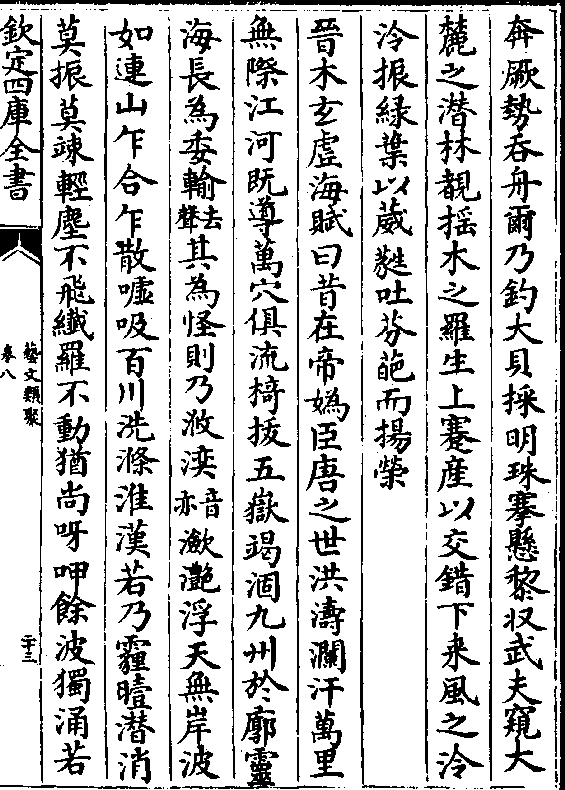 奔厥勢吞舟爾乃釣大貝採明珠搴懸黎収武夫窺大
麓之潜林覩揺木之羅生上蹇産以交錯下来風之泠
泠振緑葉以葳蕤吐芬葩而揚榮
晉木玄虛海賦曰昔在帝媯臣唐之世洪濤瀾汗萬里
無際江河既導萬穴俱流掎拔五嶽竭涸九州於廓靈
海長為委輸去聲其為怪則乃浟湙音亦瀲灔浮天無岸波
如連山乍合乍散噓吸百川洗滌淮漢若乃霾曀潜消
莫振莫竦輕塵不飛纖羅不動猶尚呀呷餘波獨涌若
欽定四庫全書
藝文類聚
卷八
二十三